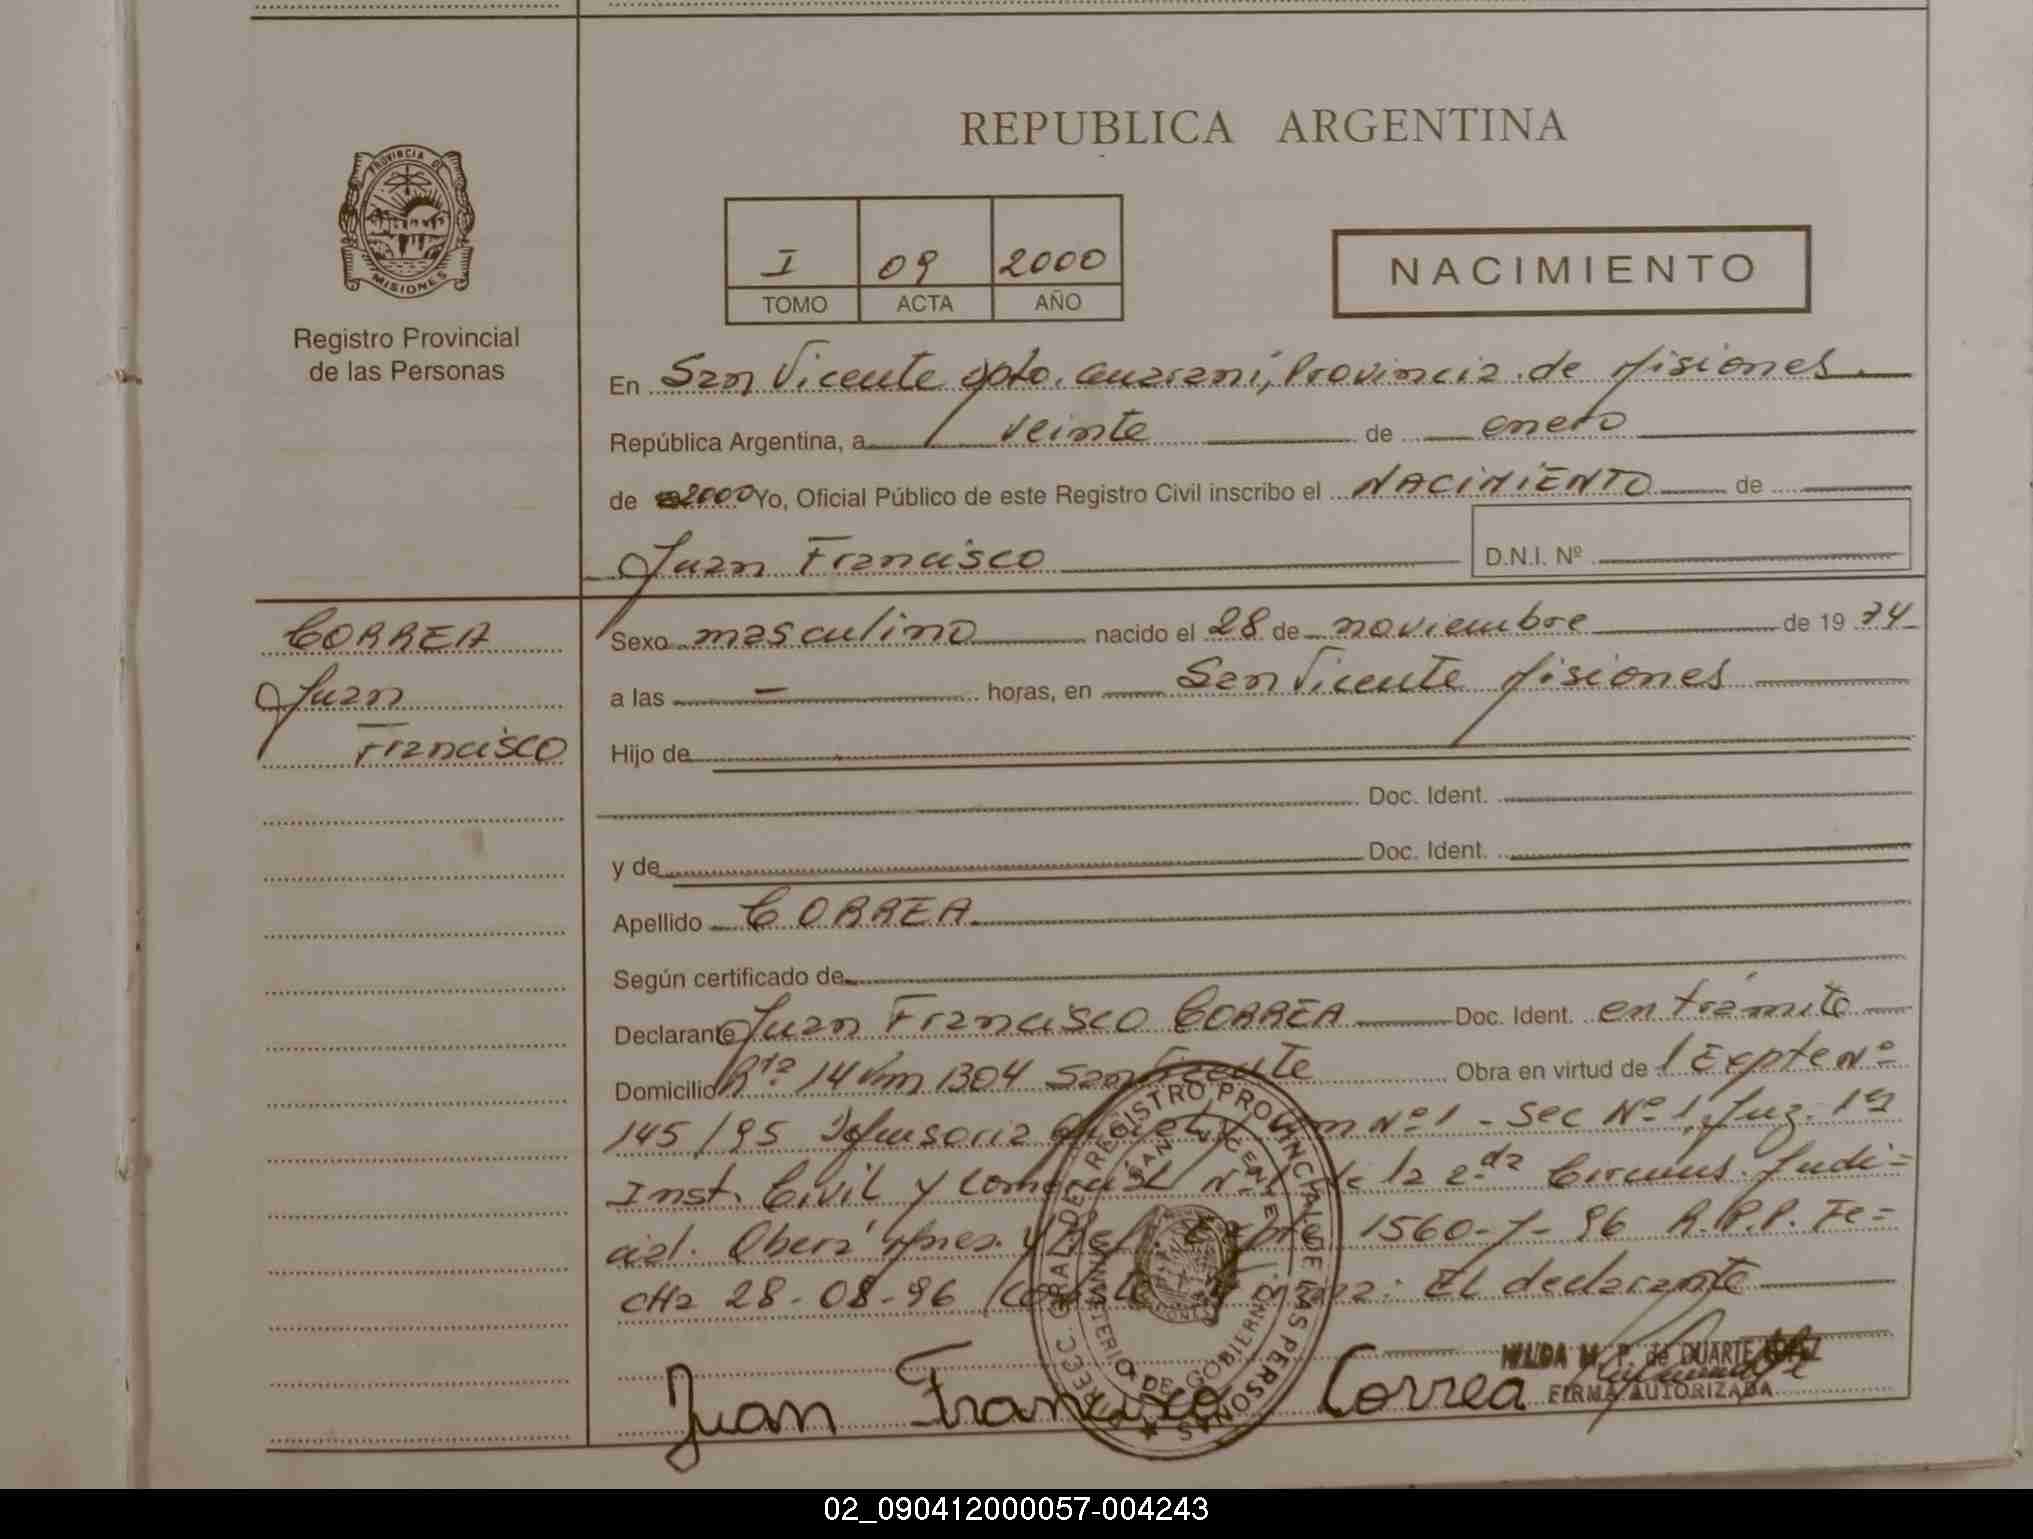 REPUBLICA ARGENTINA
PROVINCIA DE MISIONES
Registro Provincial
de las Personas
I 09 2000
TOMO ACTA AÑO
NACIMIENTO
En San Vicente dpto. Guarani, Provincia de Misiones
República Argentina, a veinte de enero
de 2000 Yo, Oficial Público de este Registro Civil inscribo el NACIMIENTO de
Juan Francisco D.N.I. Nº
CORREA
Juan
Francisco
Sexo masculino nacido el 28 de noviembre de 19 74
a las - horas, en San Vicente Misiones
Hijo de
Doc. Ident.
y de Doc. Ident.
Apellido CORREA
Según certificado de
Declarante Juan Francisco CORREA Doc. Ident. en trámite
Domicilio Rta 14 km 1304 San Vicente Obra en virtud de 1 Expte Nº
145/95 Defensoria Nº 1 - Sec Nº 1, Juz. 1ra
Inst. Civil y Comercial Nº de la 2da Circuns. Judi=
cial. Oberá Mnes. y Expte 1560-J-96 R.P.P. Fe=
cha 28-08-96 Conste firma: El declarante
DIREC. GRAL. DEL REGISTRO PROVINCIAL DE LAS PERSONAS
SAN VICENTE
MINISTERIO DE GOBIERNO
Juan Francisco Correa
HILDA M. P. de DUARTE
FIRMA AUTORIZADA
02_090412000057-004243